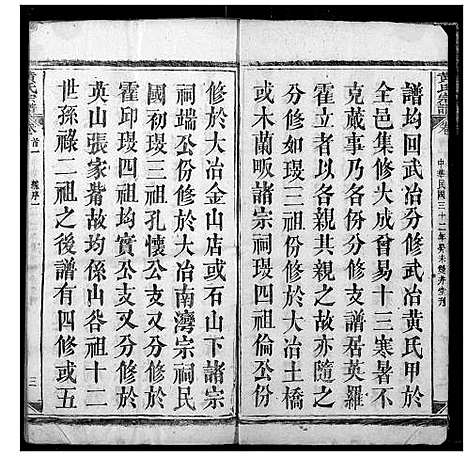 黃氏宗譜
中華民國三十二年癸未續弄堂刊
譜均回武冶分修武冶黃氏甲於
全邑集修大成曾易十三寒暑不
克蕆事乃各份修支譜居英羅
霍立者以各親其親之故亦隨之
分修如瑕三祖份修於大冶土橋
或木蘭畈諸宗祠瑕四祖倫公份
修於大冶金山店或石山下諸宗
祠端公份修於大冶南灣宗祠民
國初瑕三祖孔懷公支又分修於
霍邱瑕四祖均實公支分修於
英山張家觜故均係山谷祖十二
世孫祿二祖之後譜有四修或五
黃氏宗譜
卷首一
三